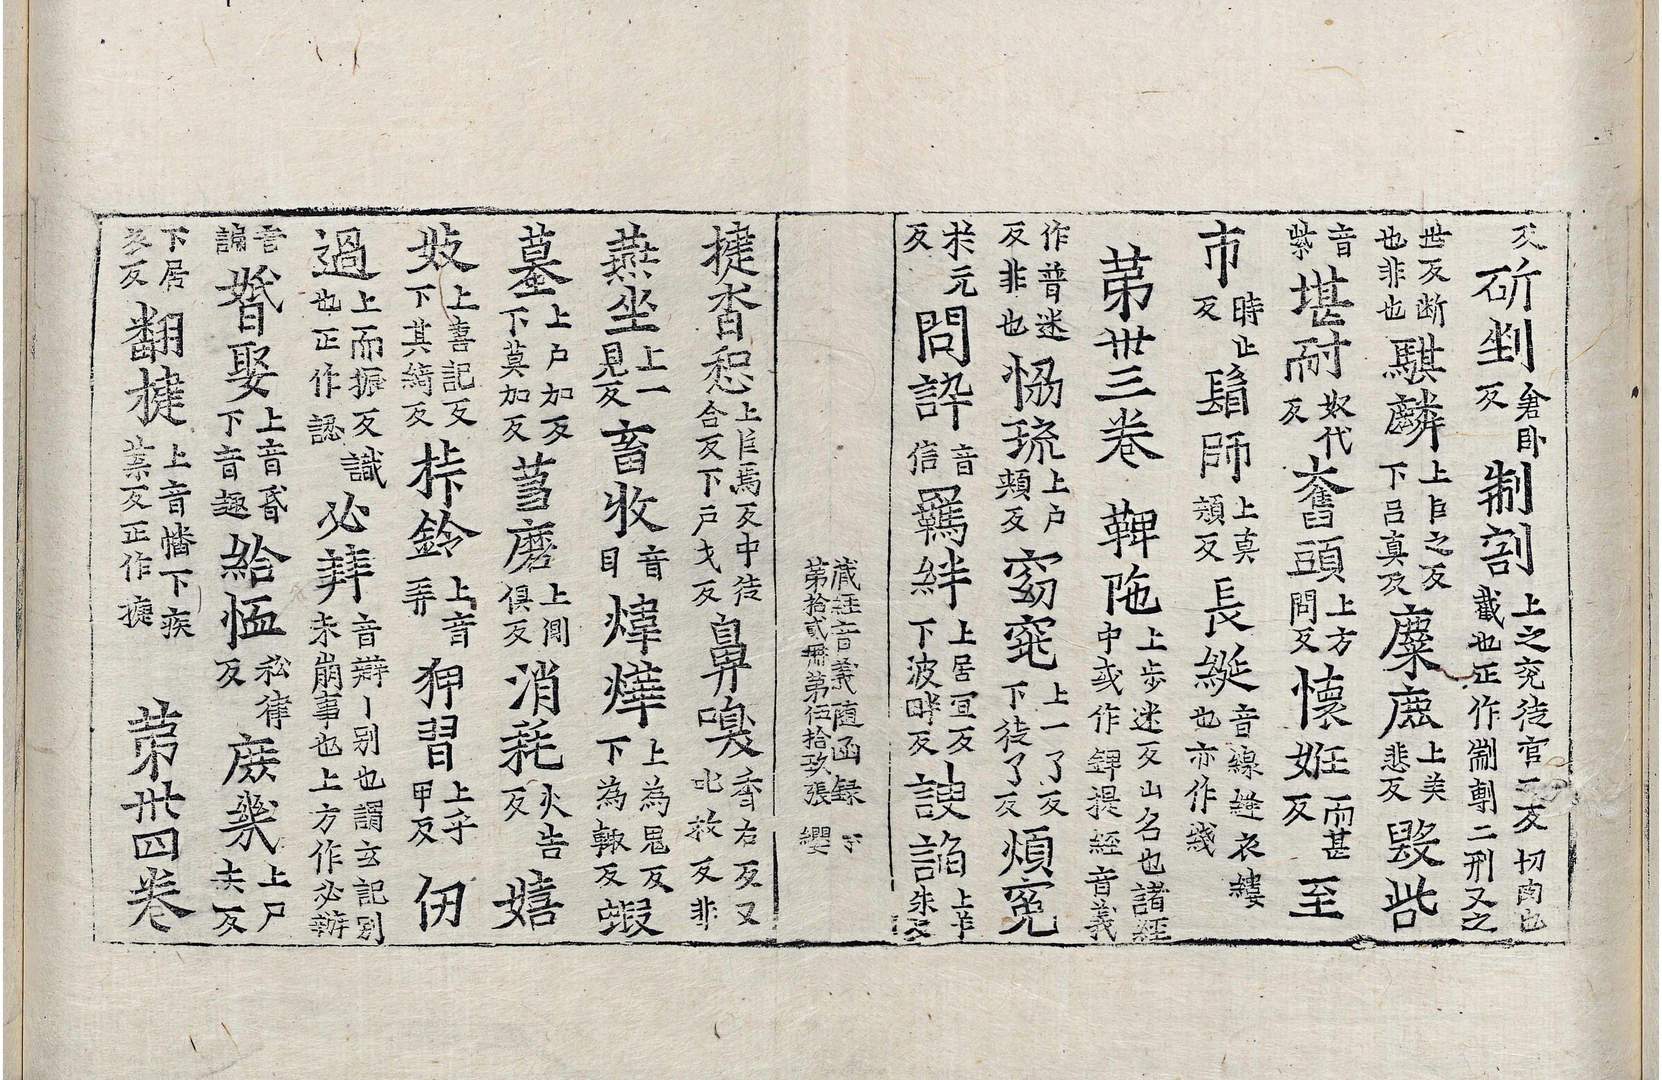 反斫剉倉卧反制剬上之兖徒官二反切肉也截也正作剬剸二形又之
世反断也非也騏驎上巨之反下吕真反麋鹿上美悲反毀呰
音紫堪耐奴代反奮頭上方問反懷妊而甚反至
市時止反鬚師上莫頰反長綖音線縫衣縷也亦作綫
第丗三卷 鞞陁上步迷反山名也諸經中或作錍提經音義
作普迷反非也恊琉上户頰反窈窕上一了反下徒了反煩冤
扵元反問誶音信羈絆上居宜反下波畔反諛諂上羊朱反
藏經音義随函録 第拾貳冊第伍拾玖張 纓
揵沓惒上巨焉反中徒合反下户戈反鼻嗅香右反又叱救反非
燕坐上一見反畜牧音目煒燁上為鬼反下為輒反蝦
蟇上户加反下莫加反磨上側俱反消耗火告反嬉
妓上喜記反下其綺反桛鈴上音弄狎習上乎甲反仞
過上而振反識也正作認必㳍音辯丨别也謂玄記别未崩事也上方作必辦
言諞㛰娶上音昏下音趣給恤私律反庶幾上尸去反
下居多反翻揵上音幡下疾葉反正作捷 第丗四卷